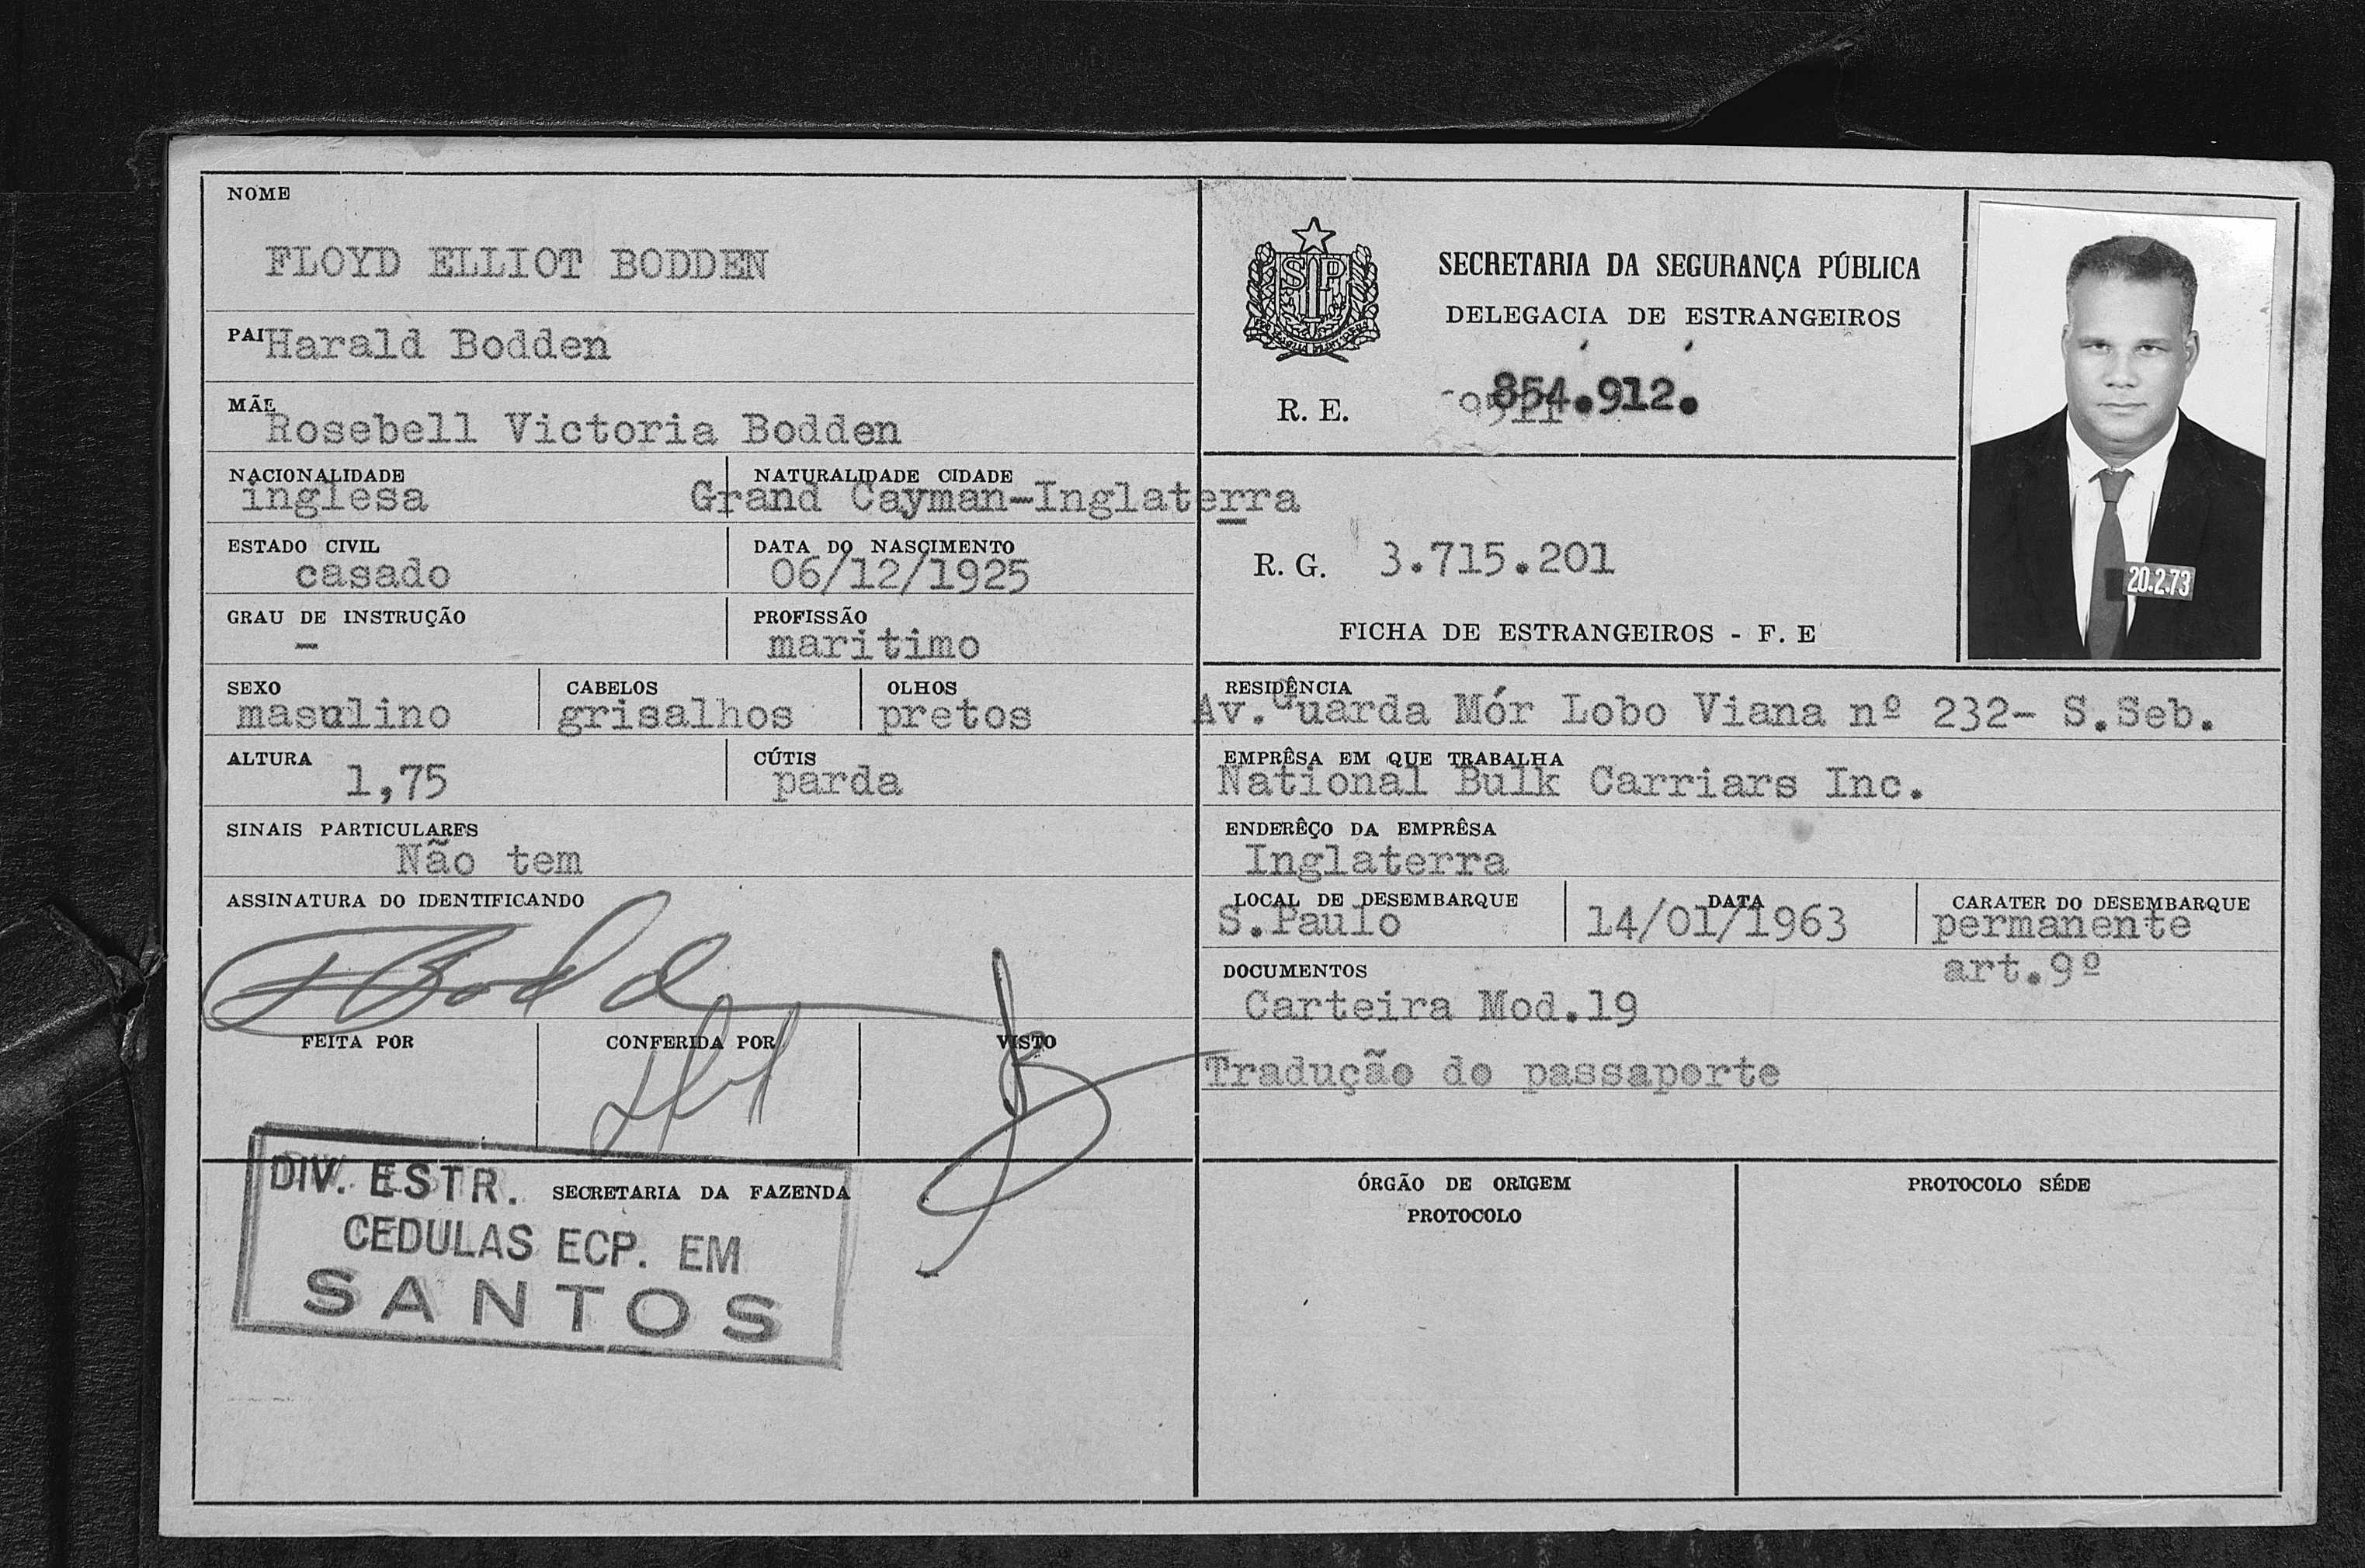 NOME
FLOYD ELLIOT BODDEN
PAI Harald Bodden
MÃE Rosebell Victoria Bodden
NACIONALIDADE
inglesa
NATURALIDADE CIDADE
Grand Cayman-Inglaterra
ESTADO CIVIL
casado
DATA DO NASCIMENTO
06/12/1925
GRAU DE INSTRUÇÃO
-
PROFISSÃO
maritimo
SEXO
masulino
CABELOS
grisalhos
OLHOS
pretos
ALTURA
1,75
CÚTIS
parda
SINAIS PARTICULARES
Não tem
ASSINATURA DO IDENTIFICANDO
F Bodden
FEITA POR
CONFERIDA POR
VISTO
DIV. ESTR.
SECRETARIA DA FAZENDA
CEDULAS ECP. EM
SANTOS
SP
SECRETARIA DA SEGURANÇA PÚBLICA
DELEGACIA DE ESTRANGEIROS
R. E. 854.912.
R. G. 3.715.201
FICHA DE ESTRANGEIROS - F. E
20.2.73
RESIDÊNCIA
Av.Guarda Mór Lobo Viana nº 232- S.Seb.
EMPRÊSA EM QUE TRABALHA
National Bulk Carriars Inc.
ENDERÊÇO DA EMPRÊSA
Inglaterra
LOCAL DE DESEMBARQUE
S.Paulo
DATA
14/01/1963
CARATER DO DESEMBARQUE
permanente
art.9º
DOCUMENTOS
Carteira Mod.19
Tradução do passaporte
ÓRGÃO DE ORIGEM
PROTOCOLO
PROTOCOLO SÉDE